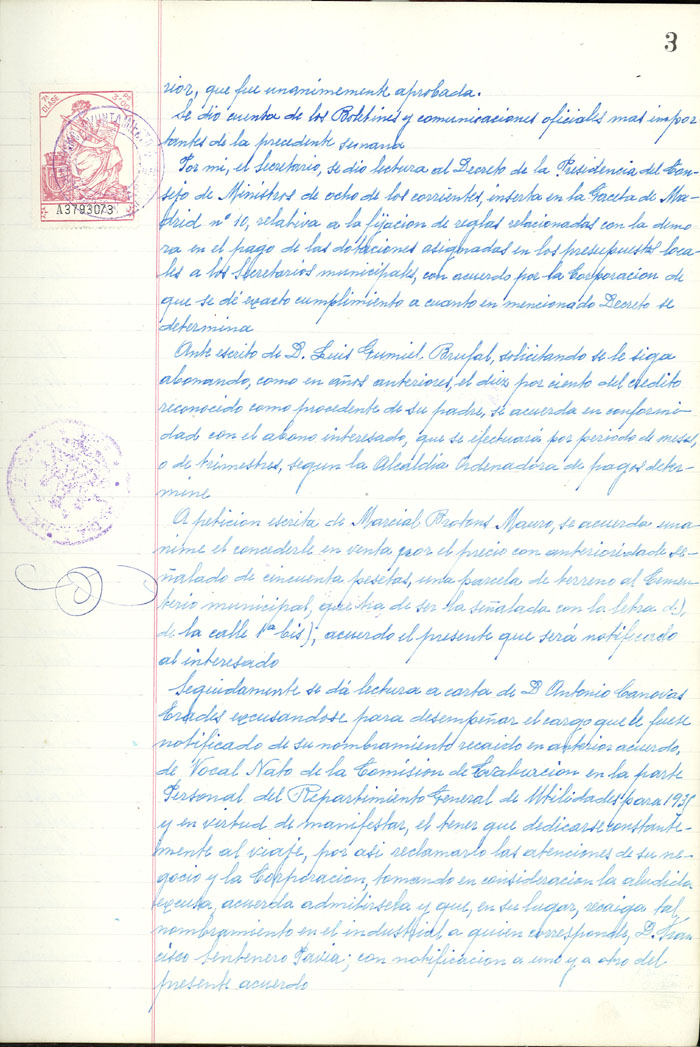 3
7ª CLASE
3'00
A3793073
rior, que fue unanimemente aprobada.
Se dio cuenta de los Boletines y comunicaciones oficiales mas impor
tantes de la precedente semana
Por mi, el Secretario, se dio lectura al Decreto de la Presidencia del Con-
sejo de Ministros de ocho de los corrientes, inserta en la Gaceta de Ma-
drid nº 10, relativa a la fijacion de reglas relacionadas con la demo
ra en el pago de las dotaciones asignadas en los presupuestos loca-
les a los Secretarios municipales, con acuerdo por la Corporacion de
que se dé exacto cumplimiento a cuanto en mencionado Decreto se
determina
Ante escrito de D. Luis Gumiel Brufal, solicitando se le siga
abonando, como en años anteriores, el diez por ciento del credito
reconocido como procedente de su padre, se acuerda en conformi-
dad con el abono interesado, que se efectuará por periodo de meses,
o de trimestres, segun la Alcaldia Ordenadora de pagos deter-
mine
A peticion escrita de Marcial Brotons Mauro, se acuerda una
nime el concederle en venta y por el precio con anterioridad se-
ñalado de cincuenta pesetas, una parcela de terreno al Cemen-
terio municipal, que ha de ser la señalada con la letra d),
de la calle 1ª bis); acuerdo el presente que será notificado
al interesado
Seguidamente se dá lectura a carta de D Antonio Canovas
Erades excusandose para desempeñar el cargo que le fuese
notificado de su nombramiento recaido en anterior acuerdo,
de Vocal Nato de la Comision de Evaluacion en la parte
Personal del Repartimiento General de Utilidades para 193
y en vertud de manifestar, el tener que dedicarse constante-
mente al viaje, por asi reclamarlo las atenciones de su ne-
gocio y la Corporacion, tomando en consideracion la aludida
excusa, acuerda admitirsela y que, en su lugar, recaiga tal
nombramiento en el industrial a quien corresponde, D. Fran
cisco Sentenero Pavia; con notificacion a uno y a otro del
presente acuerdo